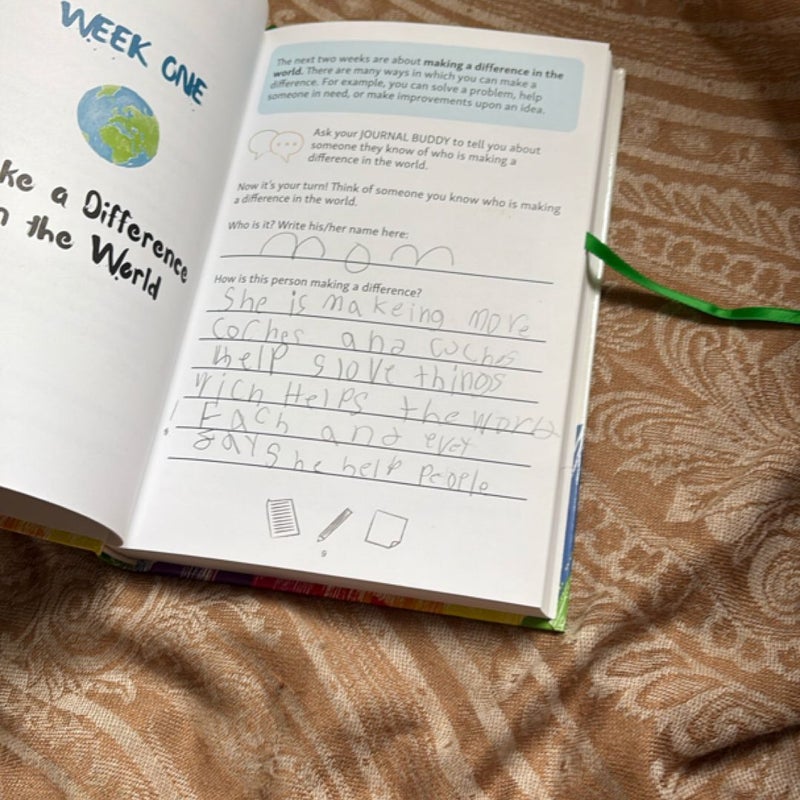 WEEK ONE
ke a Difference
n the World
The next two weeks are about making a difference in the
world. There are many ways in which you can make a
difference. For example, you can solve a problem, help
someone in need, or make improvements upon an idea.
Ask your JOURNAL BUDDY to tell you about
someone they know of who is making a
difference in the world.
Now it's your turn! Think of someone you know who is making
a difference in the world.
Who is it? Write his/her name here:
mom
How is this person making a difference?
She is makeing more
coches and coches
help slove things
wich Helps the world
! Each and evey
day she help people
9